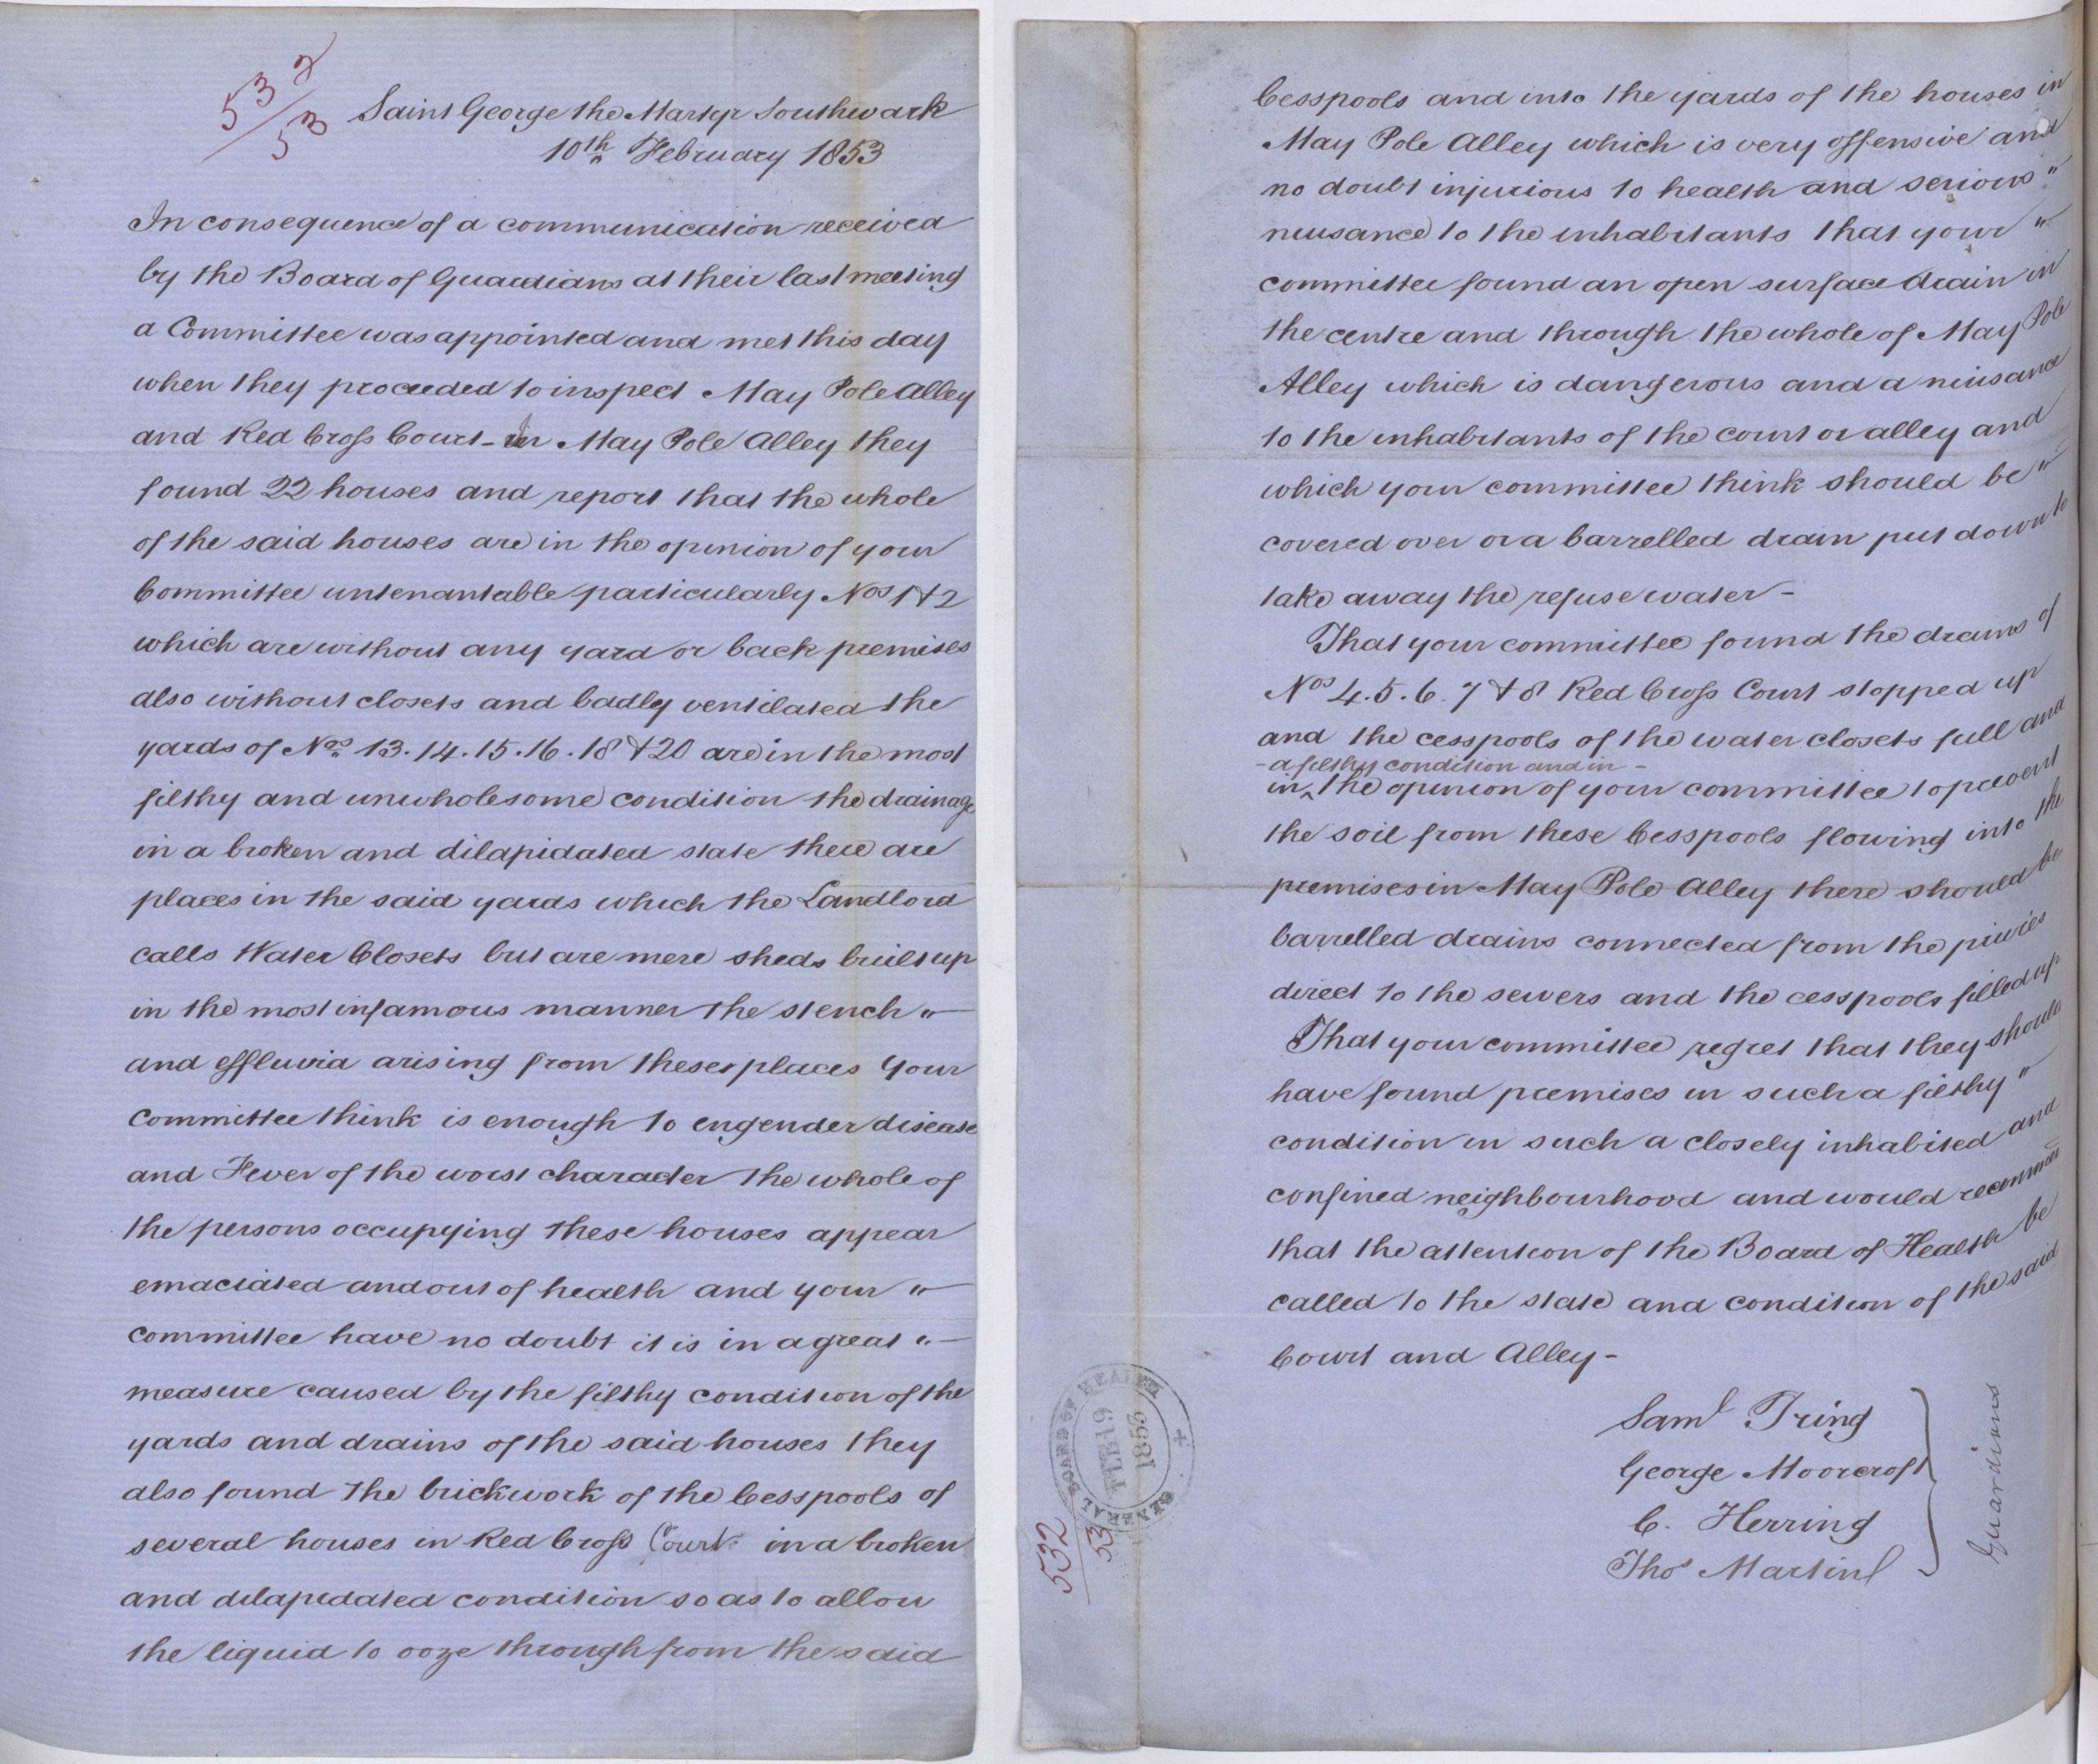 532
53
Saint George the Martyr Southwark
10th February 1853
In consequence of a communication received
by the Board of Guardians at their last meeting
a Committee was appointed and met this day
when they proceeded to inspect May Pole Alley
and Red Cross Court - in May Pole Alley they
found 22 houses and report that the whole
of the said houses are in the opinion of your
Committee untenantable particularly Nos 1 & 2
which are without any yard or back premises
also without closets and badly ventilated the
yards of Nos 13. 14. 15. 16. 18 & 20 are in the most
filthy and unwholesome condition the drainage
in a broken and dilapidated state there are
places in the said yards which the Landlord
calls Water Closets but are mere sheds built up
in the most infamous manner the stench "
and effluvia arising from these places your
committee think is enough to engender disease
and Fever of the worst character the whole of
the persons occupying these houses appear
emaciated and out of health and your "
committee have no doubt it is in a great "
measure caused by the filthy condition of the
yards and drains of the said houses they
also found the brickwork of the Cesspools of
several houses in Red Cross Court in a broken
and dilapedated condition so as to allow
the liquid to ooze through from the said
Cesspools and into the yards of the houses in
May Pole Alley which is very offensive and
no doubt injurious to health and serious "
neusance to the inhabitants that your "
committee found an open surface drain in
the centre and through the whole of May Pole
Alley which is dangerous and a niusance
to the inhabitants of the court or alley and
which your committee think should be "
covered over or a barrelled drain put down to
take away the refuse water -
That your committee found the drains of
Nos 4. 5. 6. 7 & 8 Red Cross Court stopped up
and the cesspools of the water closets full and
- a filthy condition and in -
in ^ the opinion of your committee to prevent
the soil from these Cesspools flowing into the
premises in May Pole Alley there should be
barrelled drains connected from the privies
direct to the sewers and the cesspools filled up
That your committee regret that they should
have found premises in such a filthy "
condition in such a closely inhabited and
confined neighbourhood and would recommend
that the attention of the Board of Health be
called to the state and condition of the said
Court and Alley -
Saml Tring
George Moorcroft
C. Herring
Thos Martin
Guardians
GENERAL BOARD OF HEALTH
FEB 19
1853
532
53